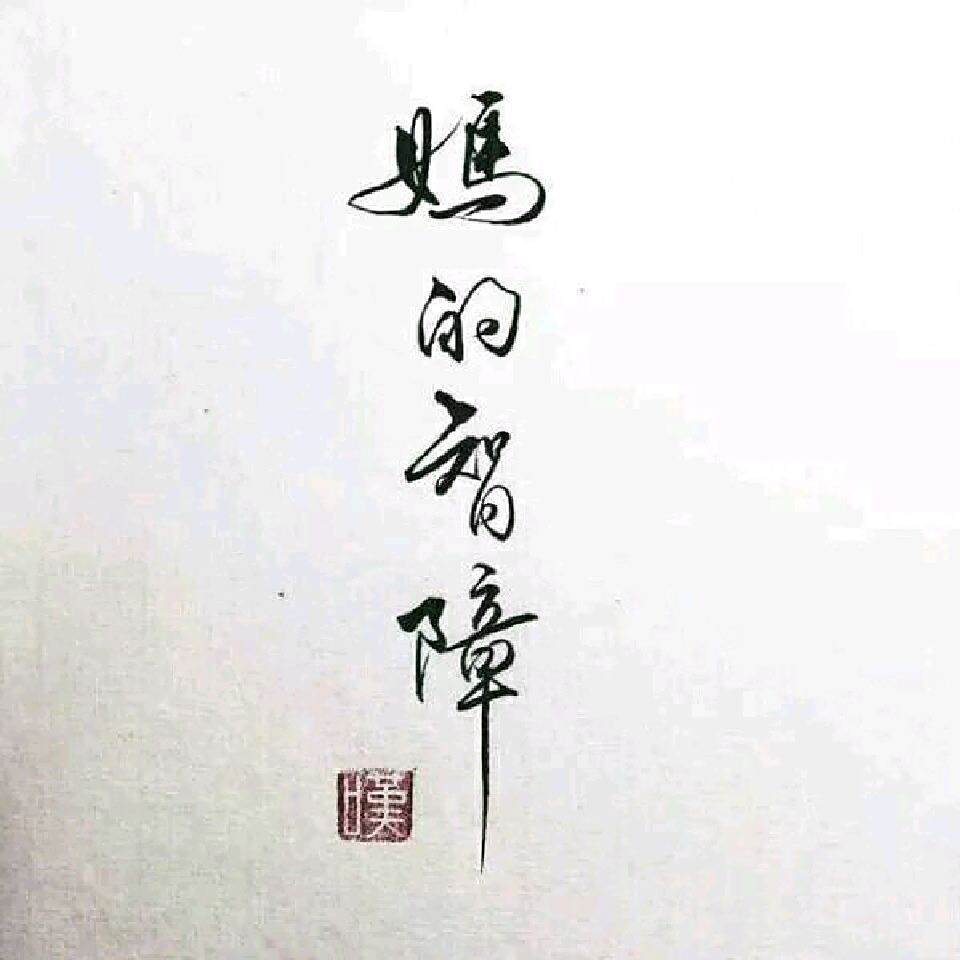 媽的智障